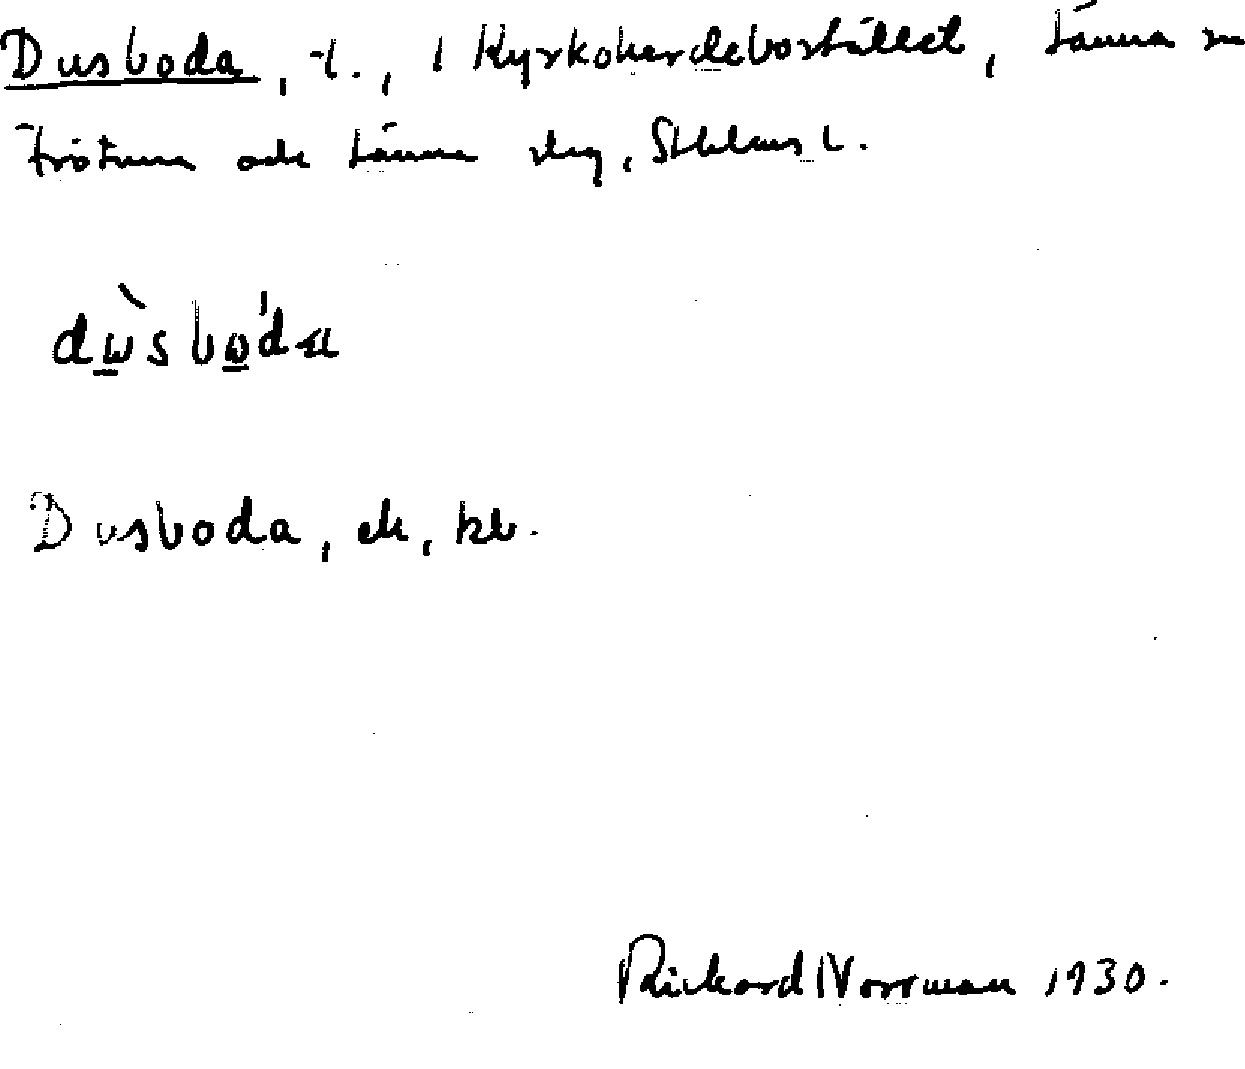 Dusboda, t., 1 Kyrkoherdebostället, Länna sn
Frötuna och Länna slg, Sthlms l.
dùsbo'da
Dusboda, ek, kb.
Rickard Norrman 1930.